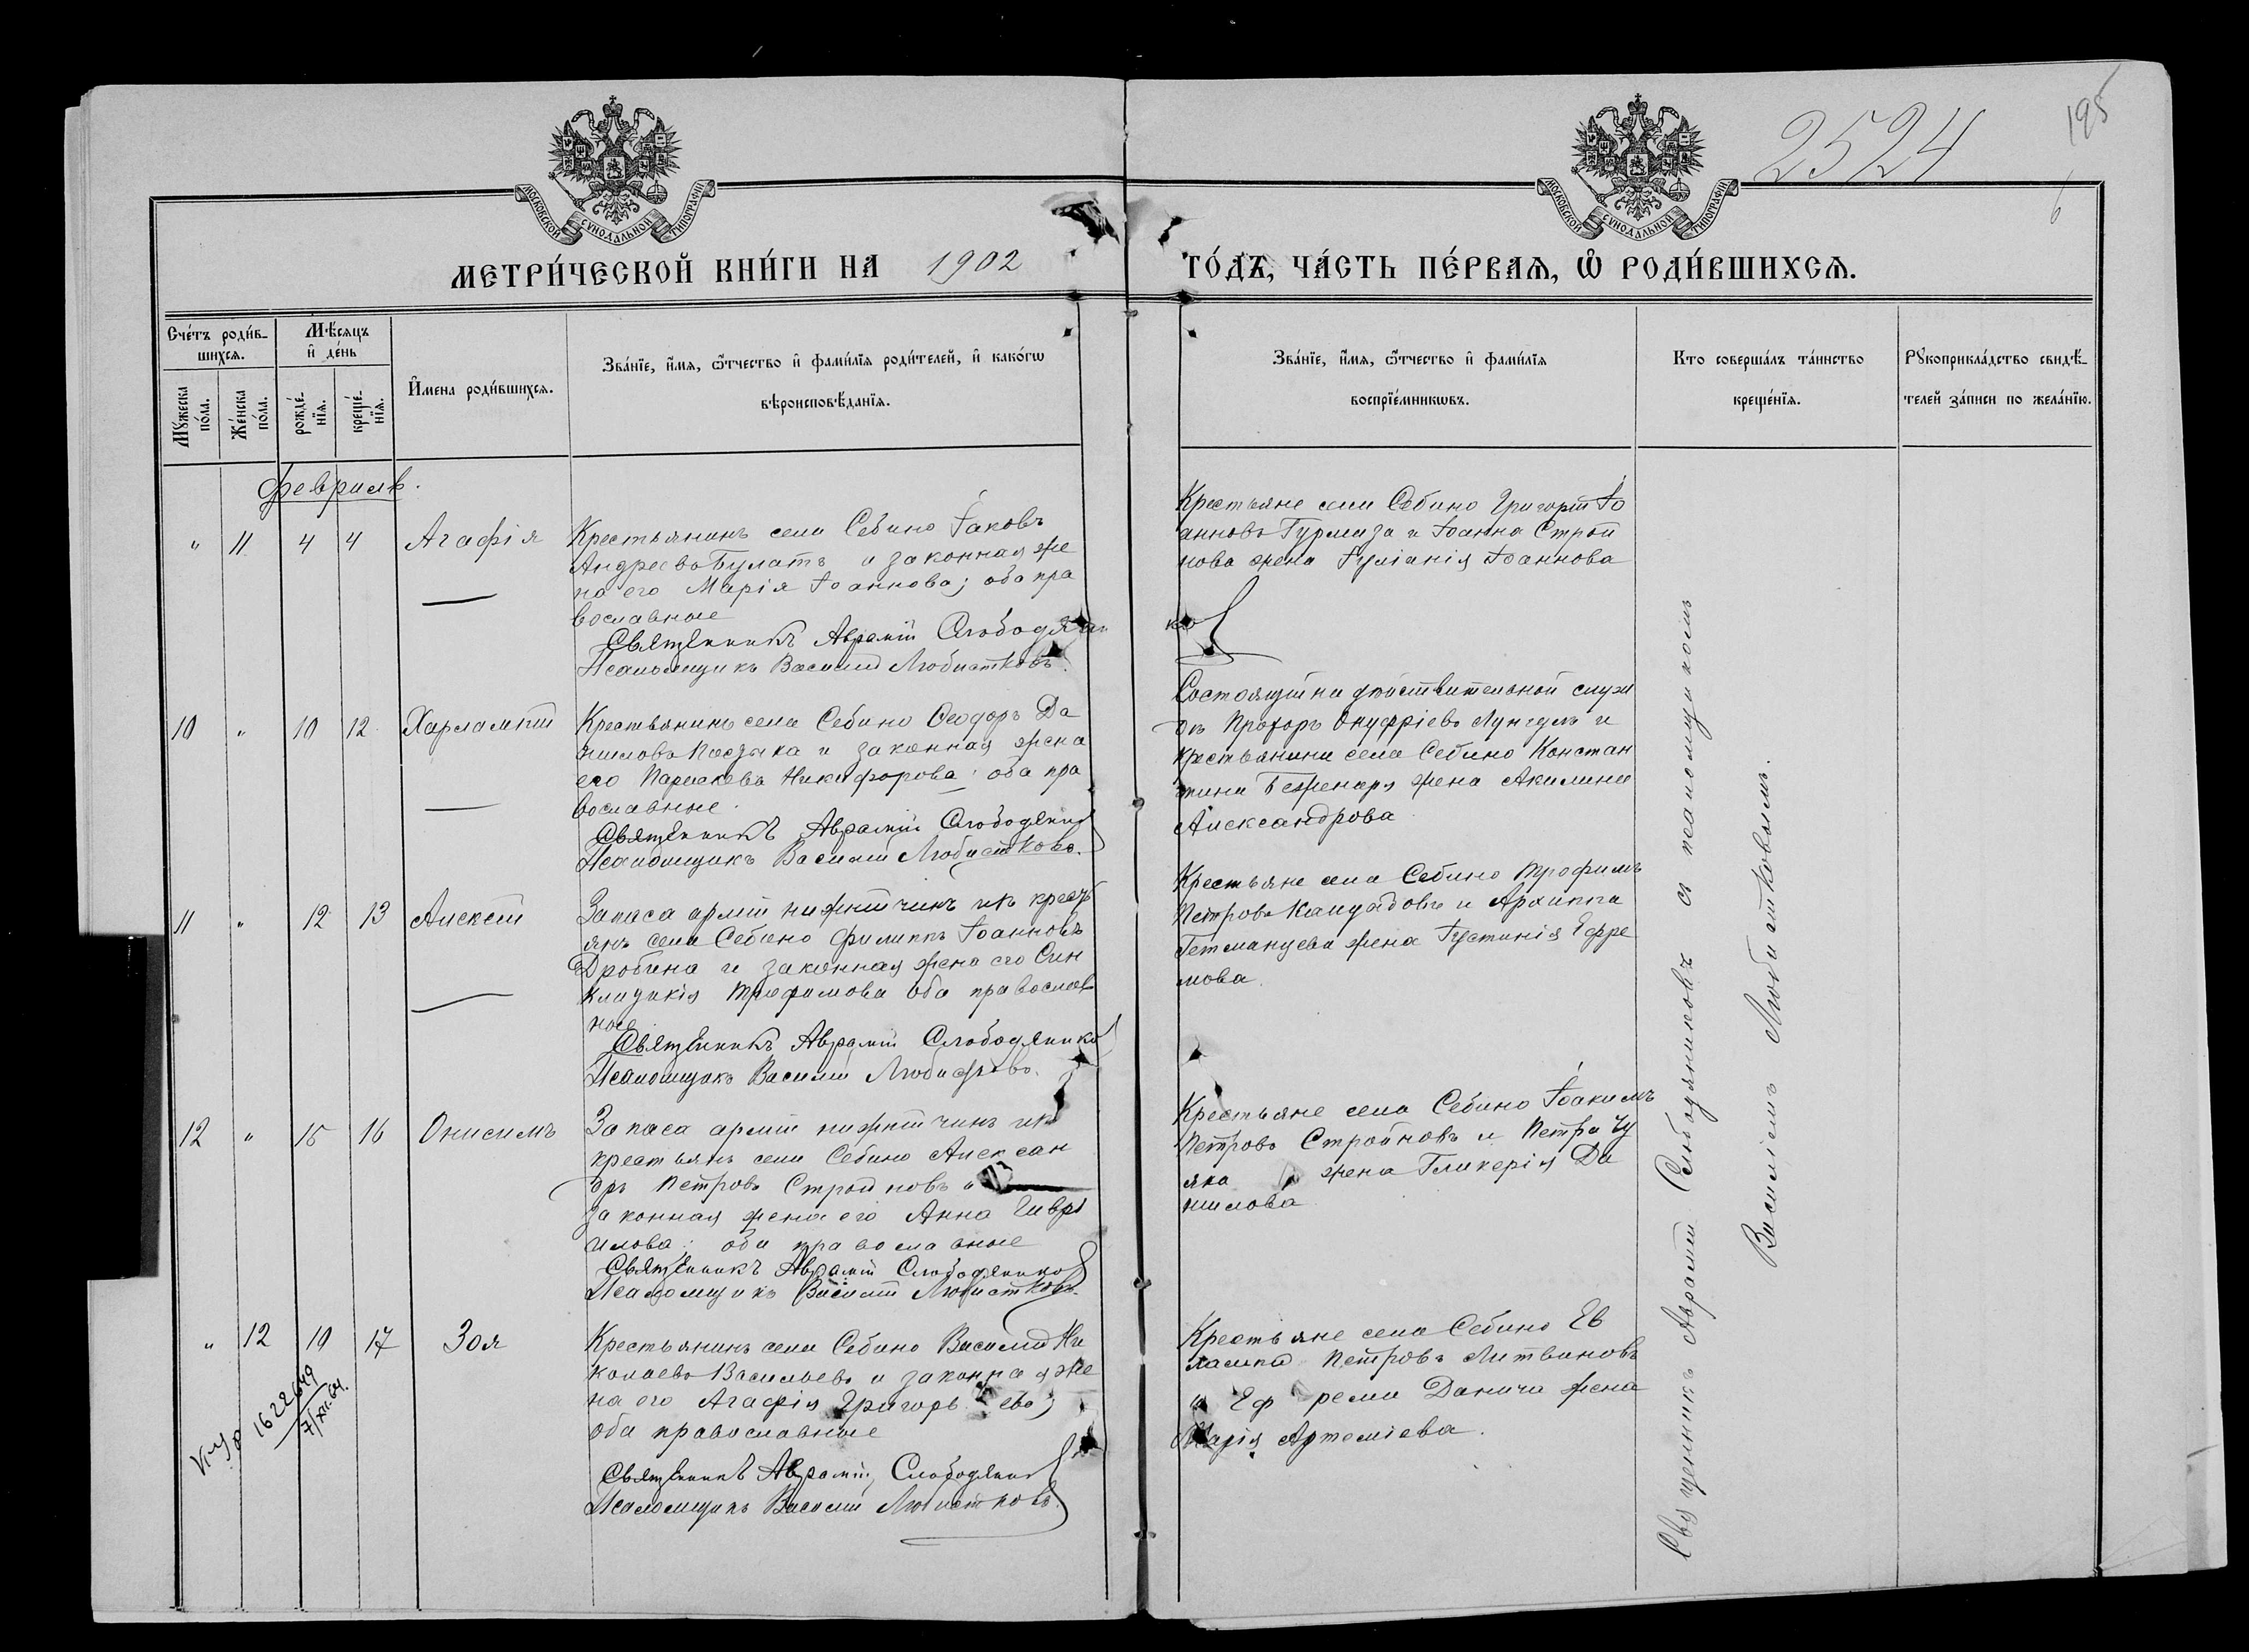 2524
195
6
МОСКОВСКОЙ СѴНОДАЛЬНОЙ ТИПОГРАФІИ
МОСКОВСКОЙ СѴНОДАЛЬНОЙ ТИПОГРАФІИ
МЕТРИ́ЧЕСКОЙ КНИ́ГИ НА 1902 ГО́ДЪ, ЧА́СТЬ ПЕ́РВАЯ, Ѡ҆ РОДИ́ВШИХСЯ.
Сче́тъ роди́в-
шихся.
Мꙋ́жеска
по́ла.
Же́нска
по́ла.
Мѣ́сяцъ
и҆ де́нь
рожде́-
нїя.
креще́-
нїя.
И҆мена роди́вшихся.
Зва́нїе, и҆́мя, ѻ҆́тчество и҆ фами́лїя роди́телей, и҆ како́гѡ
вѣроисповѣ́данїя.
Зва́нїе, и҆́мя, ѻ҆́тчество и҆ фами́лїя
воспрїе́мникѡвъ.
Кто соверша́лъ та́инство
креще́нїя.
Рꙋкоприкла́дство свидѣ́-
телей за́писи по жела́нїю.
Февраль.
" 11 4 4 Агафія
Крестьянинъ села Себино Іаковъ
Андреевъ Булатъ и законная же
на его Марія Іоаннова; оба пра
вославные
Священникъ Аврамій Слободянико
Псаломщикъ Василій Любистковъ.
Крестьяне села Себино Григорій Іо
анновъ Гурмаза и Іоанна Строй
нова жена Іуліанія Іоаннова
10 " 10 12 Харлампій
Крестьянинъ села Себино Ѳеодоръ Да
ниловъ и законная жена
его Параскева Никифорова; оба пра
вославные.
Священникъ Аврамій Слободяник
Псаломщикъ Василій Любистковъ.
Состоящій на дѣйствительной служ
бѣ Прохоръ Онуфріевъ Лунгулъ и
крестьянина села Себино Констан
тина Беженаря жена Акилина
Александрова
11 " 12 13 Алексій
Запаса арміи нижній чинъ изъ крест
янъ села Себино Филиппъ Іоанновъ
Дробина и законная жена его Син
клидикія Трофимова оба православ
ные
Священникъ Аврамій Слободянико
Псаломщикъ Василій
Крестьяне села Себино Трофимъ
Петровъ и Архиппа
Гетманцева жена Іустинія Ефре
мова.
12 " 15 16 Онисимъ
Запаса арміи нижній чинъ изъ
крестьянъ села Себино Алексан
дръ Петровъ Стройновъ и
законная жена его Анна Гаврі
илова; оба православные
Священникъ Аврамій Слободянико
Псаломщикъ Василій Любистковъ.
Крестьяне села Себино Іоакимъ
Петровъ Стройновъ и Петра Чу
яка жена Гликерія Да
нилова
" 12 10 17 Зоя
Крестьянинъ села Себино Василій Ни
колаевъ Васильевъ и законная же
на его Агафія Григорьева;
оба православные
Священникъ Аврамій Слободяник
Псаломщикъ Василій Любистковъ.
Крестьяне села Себино Ев
лампій Петровъ Литвиновъ
и Ефрема Данича жена
Марія Артеміева.
1622649
7/XII.64.
Священникъ Аврамій Слободяниковъ съ псаломщикомъ
Василіемъ Любистковымъ.